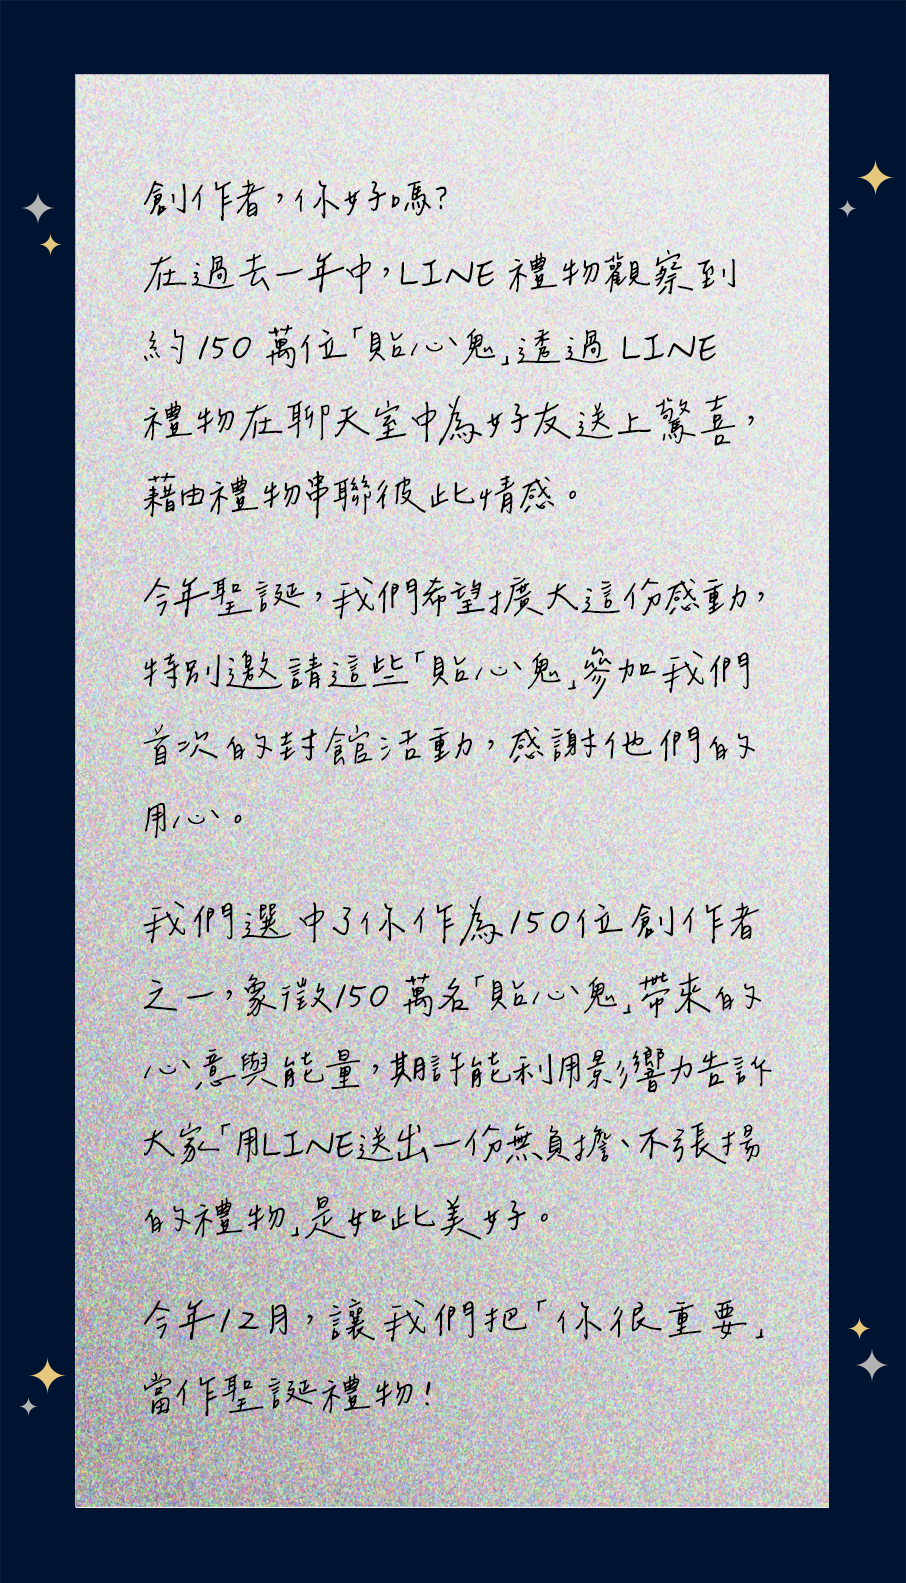 創作者，你好嗎？
在過去一年中，LINE 禮物觀察到
約 150 萬位「貼心鬼」透過 LINE
禮物在聊天室中為好友送上驚喜，
藉由禮物串聯彼此情感。
今年聖誕，我們希望擴大這份感動，
特別邀請這些「貼心鬼」參加我們
首次的封館活動，感謝他們的
用心。
我們選中了你作為150位創作者
之一，象徵150 萬名「貼心鬼」帶來的
心意與能量，期許能利用影響力告訴
大家「用LINE送出一份無負擔、不張揚
的禮物」是如此美好。
今年12月，讓我們把「你很重要」
當作聖誕禮物！